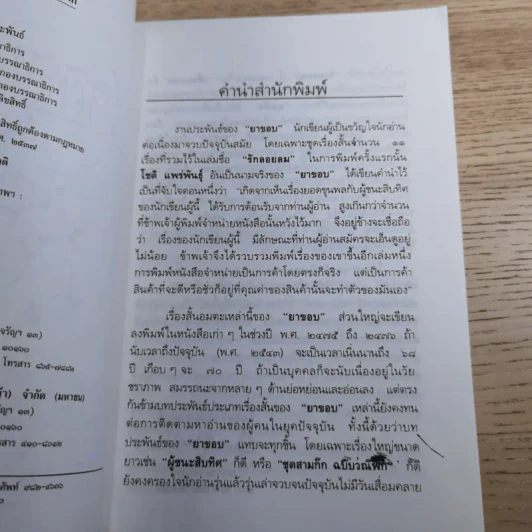 ะพันธ์
าธิการ
บรรณาธิการ
กองบรรณาธิการ
กองบรรณาธิการ
ขสิทธิ์
สิทธิ์ถูกต้องตามกฎหมาย
ศ. ๒๕๓๗
ติ
ทพฯ :
จรัญฯ ๑๓)
๑๐๑๖๐
จำกัด (มหาชน)
จรัญฯ ๑๓)
๑๐๑๖๐
คำนำสำนักพิมพ์
งานประพันธ์ของ "ยาขอบ" นักเขียนผู้เป็นขวัญใจนักอ่าน
ต่อเนื่องมาจวบปัจจุบันสมัย โดยเฉพาะชุดเรื่องสั้นจำนวน ๑๑
เรื่องที่รวมไว้ในเล่มชื่อ "รักลอยลม" ในการพิมพ์ครั้งแรกนั้น
โชติ แพร่พันธุ์ อันเป็นนามจริงของ "ยาขอบ" ได้เขียนคำนำไว้
เป็นที่จับใจตอนหนึ่งว่า "เกิดจากเห็นเรื่องยอดขุนพลกับผู้ชนะสิบทิศ
ของนักเขียนผู้นี้ ได้รับการต้อนรับจากท่านผู้อ่าน สูงเกินกว่าจำนวน
ที่ข้าพเจ้าผู้พิมพ์จำหน่ายหนังสือนั้นหวังไว้มาก จึงอยู่ข้างจะเชื่อถือ
ว่า เรื่องของนักเขียนผู้นี้ มีลักษณะที่ท่านผู้อ่านสมัครจะเอ็นดูอยู่
ไม่น้อย ข้าพเจ้าจึงได้รวบรวมพิมพ์เรื่องของเขาขึ้นอีกเล่มหนึ่ง
การพิมพ์หนังสือจำหน่ายเป็นการค้าโดยตรงก็จริง แต่เป็นการค้า
สินค้าที่จะดีหรือชั่วก็อยู่ที่คุณค่าของสินค้านั้นจะทำตัวของมันเอง"
เรื่องสั้นอมตะเหล่านี้ของ "ยาขอบ" ส่วนใหญ่จะเขียน
ลงพิมพ์ในหนังสือเก่า ๆ ในช่วงปี พ.ศ. ๒๔๗๕ ถึง ๒๔๗๖ ถ้า
นับเวลาถึงปัจจุบัน (พ.ศ. ๒๕๔๓) จะเป็นเวลาเนิ่นนานถึง ๖๘
ปี เกือบ ๆ จะ ๗๐ ปี ถ้าเป็นบุคคลก็จะนับเนื่องอยู่ในวัย
ชราภาพ สมรรถนะจากหลาย ๆ ด้านย่อหย่อนและอ่อนลง แต่ตรง
กันข้ามบทประพันธ์ประเภทเรื่องสั้นของ "ยาขอบ" เหล่านี้ยังคงทน
ต่อการติดตามหาอ่านของผู้คนในยุคปัจจุบัน ทั้งนี้ด้วยว่าบท
ประพันธ์ของ "ยาขอบ" แทบจะทุกชิ้น โดยเฉพาะเรื่องใหญ่ขนาด
ยาวเช่น "ผู้ชนะสิบทิศ" ก็ดี หรือ "ชุดสามก๊ก ฉบับวณิพก" ก็ดี
ยังคงครองใจนักอ่านรุ่นแล้วรุ่นเล่าจวบจนปัจจุบันไม่มีวันเสื่อมคลาย